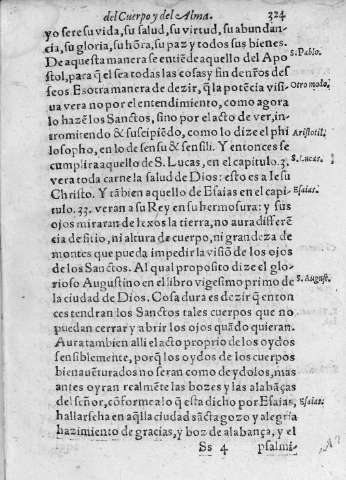 del Cuerpo y del Alma. 324
yo sere su vida, su salud, su virtud, su abundan-
cia, su gloria, su hõra, su paz y todos sus bienes.
De aquesta manera se entiẽde aquello del Apo S. Pablo.
stol, para q̃ el sea todas las cosas y fin de nr̃os des
seos. Es otra manera de dezir, q̃ la potẽcia visi- Otro modo.
ua vera no por el entendimiento, como agora
lo hazẽ los Sanctos, sino por el acto de ver, in-
tromitendo & suscipiẽdo, como lo dize el phi
losopho, en lo de sensu & sensili. Y entonces se Aristotil.
cumplira aquello de S. Lucas, en el capitulo. 3. S. Lucas.
vera toda carne la salud de Dios: esto es a Iesu
Christo. Y tãbien aquello de Esaias en el capi- Esaias.
tulo. 33. veran a su Rey en su hermosura: y sus
ojos miraran de lexos la tierra, no aura differẽ
cia de sitio, ni altura de cuerpo, ni grandeza de
montes que pueda impedir la visiõ de los ojos
de los Sanctos. Al qual proposito dize el glo-
rioso Augustino en el libro vigesimo primo de S. August.
la ciudad de Dios. Cosa dura es dezir q̃ enton
ces tendran los Sanctos tales cuerpos que no
puedan cerrar y abrir los ojos quãdo quieran.
Aura tambien alli el acto proprio de los oydos
sensiblemente, porq̃ los oydos de los cuerpos
bienauẽturados no seran como de ydolos, mas
antes oyran realmẽte las bozes y lãs alabãças
del señor, cõforme a lo q̃ esta dicho por Esaias, Esaias.
hallarse ha en aq̃lla ciudad sãcta gozo y alegria
hazimiento de gracias, y boz de alabança, y el
Ss 4 psalmi-